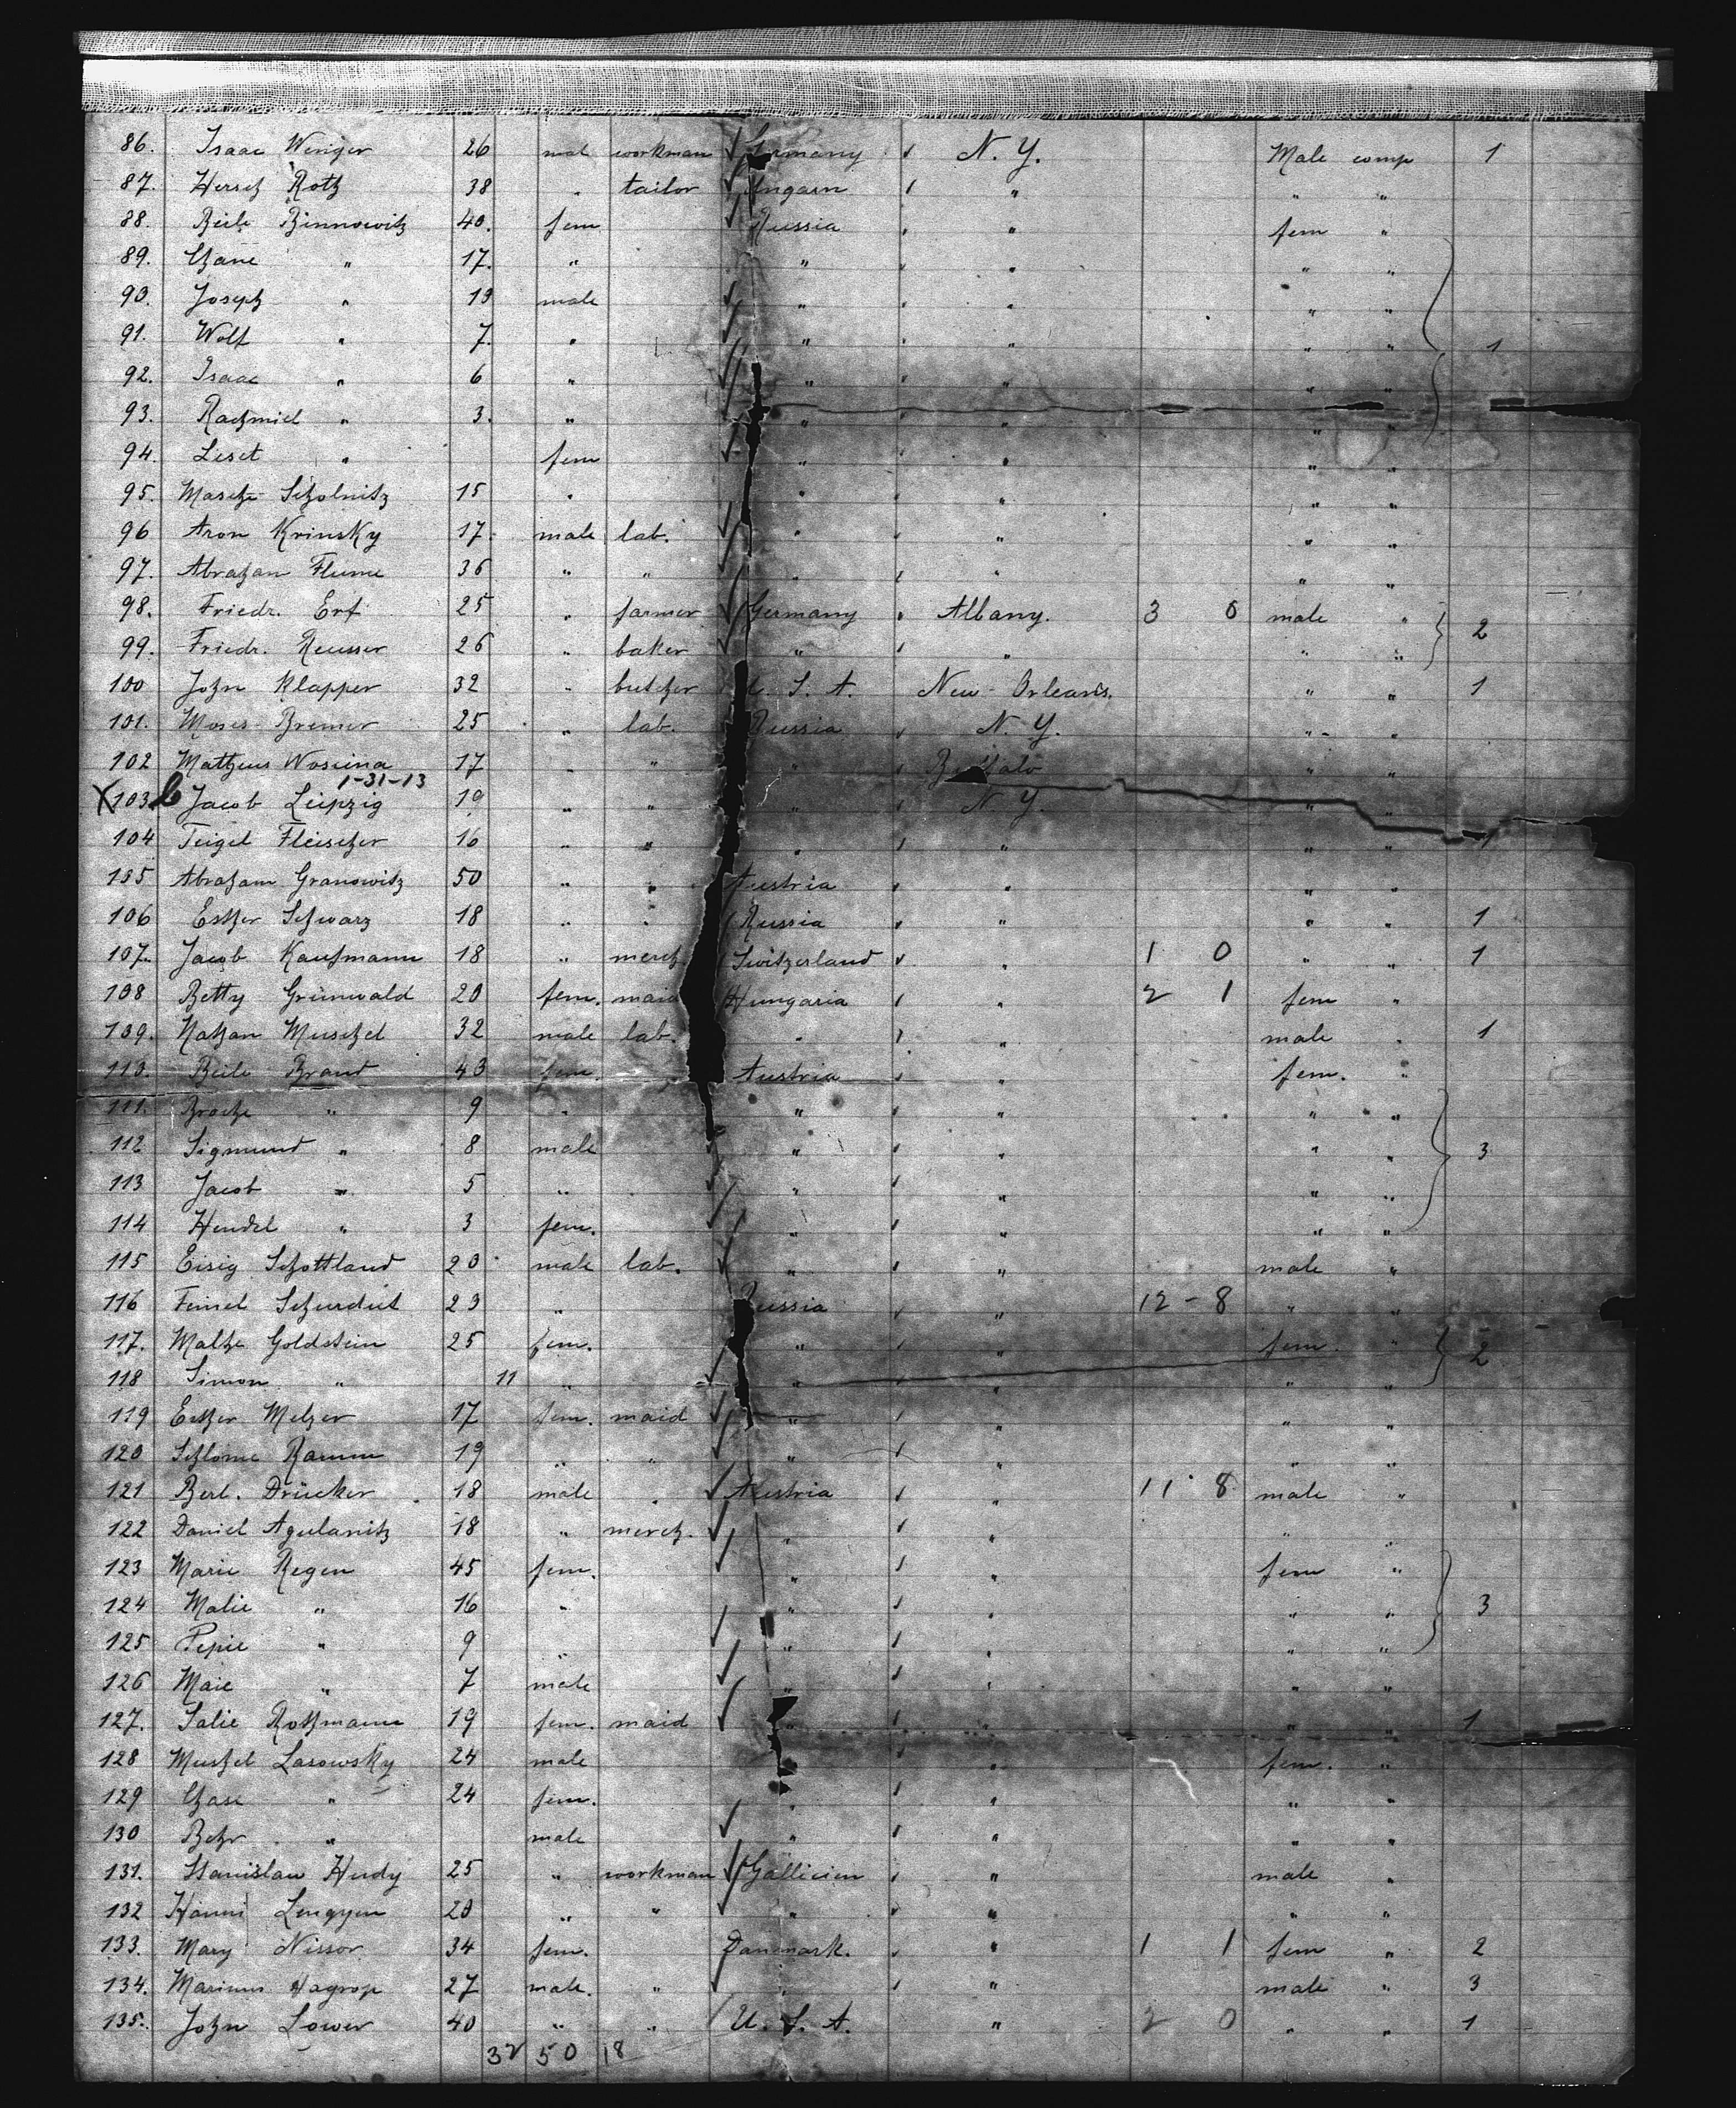 86. Isaac Weriger 26 mal workman Germany N. Y. Male comp 1
87. Hersch Roth 38 " tailor Ungarn " " "
88. Beile Binnowitz 40. fem Russia " fem "
89. Chane " 17. " " " " "
90. Joseph " 19 male " " " "
91. Wolf " 7. " " " " " 1
92. Isaac " 6 " " " " "
93. Rachmiel " 3. " " " " "
94. Leset " fem " " " "
95. Masche Scholnitz 15 " " " " "
96 Aron Krinsky 17. male lab. " " " "
97. Abraham Flume 36 " " " " " "
98. Friedr. Erf 25 " farmer Germany Albany. 3 0 male " 2
99. Friedr. Reusser 26 " baker " " " "
100 John Klapper 32 " butcher U. S. A. New-Orleans. " " 1
101. Moses Bremer 25 " lab. Russia N. Y. " "
102 Matheus Wosiina 17 " " " Buffalo " "
1-31-13
X 103 Jacob Leipzig 19 " " " N. Y. " "
104 Teigel Fleischer 16 " " " " " " 1
105 Abraham Granowitz 50 " " Austria " " "
106 Esther Schwarz 18 " " Russia " " " 1
107. Jacob Kaufmann 18 " merch. Switzerland " 1 0 " " 1
108 Betty Grünwald 20 fem. maid Hungaria " 2 1 fem "
109. Nathan Muschel 32 male lab. " " male " 1
110. Beile Brand 43 fem. Austria " fem. "
111. Broche " 9 " " " " "
112 Sigmund " 8 male " " " " 3
113 Jacob " 5 " " " " "
114 Hendel " 3 fem. " " " "
115 Eisig Schottland 20 male lab. " " male "
116 Feinel Schurdut 23 " Russia " 12 - 8 " "
117. Malhe Goldstein 25 fem. " " fem. " 2
118 Simon " 11 " " " " "
119 Esther Melzer 17 fem. maid " " " "
120 Schlome Ramm 19 " " " " " "
121 Berl. Drücker 18 male " Austria " 11 8 male "
122 Daniel Agulanitz 18 " merch. " " " "
123 Marie Regen 45 fem. " " fem "
124 Malie " 16 " " " " " 3
125 Pepie " 9 " " " " "
126 Maie " 7 male " " " "
127. Salie Rothmann 19 fem. maid " " " " 1
128 Muschel Lasowsky 24 male " " fem. "
129 Chase " 24 fem. " " " "
130 Behr " male " " " "
131. Stanislaw Hudy 25 " workman Gallicien " male "
132 Hanni Lengyen 20 " " " " " "
133. Mary Nissor 34 fem. Danmark. " 1 1 fem " 2
134. Marinus Hagrop 27 male. " " " male " 3
135. John Lower 40 " " U. S. A. " 2 0 " " 1
32 50 18